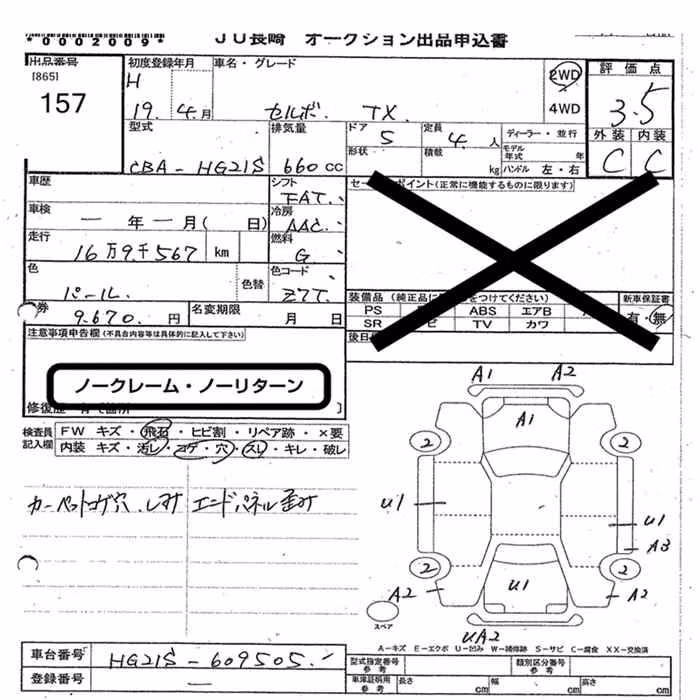 *0002009*
JU長崎 オークション出品申込書
出品番号 [865] 157
初度登録年月 H 19. 4.月
車名・グレード セルボ TX
2WD 4WD
評価点 3.5
外装 内装 C C
型式 CBA-HG21S
排気量 660 cc
ドア 5 形状
定員 4人 積載 kg
ディーラー・並行
モデル年式 年
ハンドル 左・右
車歴
シフト FAT
車検 一年一月( 日)
冷房 AAC
走行 16万9千567 km
燃料 G
色 パール 色替
色コード Z7T
券 9.670.円
名変期限 月 日
セールスポイント(正常に機能するものに限ります)
装備品 (純正品に をつけてください)
PS ABS エアB
SR TV カワ
新車保証書 有・無
後日
注意事項申告欄(不具合内容等は具体的に記入して下さい)
ノークレーム・ノーリターン
修復歴
検査員記入欄
FW キズ・飛石・ヒビ割・リペア跡・×要
内装 キズ・汚レ・コゲ・穴・スレ・キレ・破レ
カーペットコゲ穴.シミ エンドパネル歪み
A1 A2
A1
2 2
U1 U1
A3
2 2
A2 A2
U1
UA2
スペア
A-キズ E-エクボ U-凹み W-補修跡 S-サビ C-腐食 XX-交換済
車台番号 HG21S-609505
登録番号 一
型式指定番号 参考
類別区分番号 参考
車庫証明用 参考 長さ cm 幅 cm 高さ cm